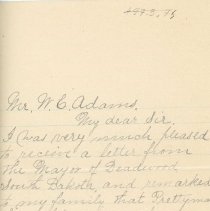 Mr. W. E. Adams.
My dear Sir.
I was very much pleased
to receive a letter from
the Mayor of Deadwood
South Dakota, and remarked
to my family that Prettyma